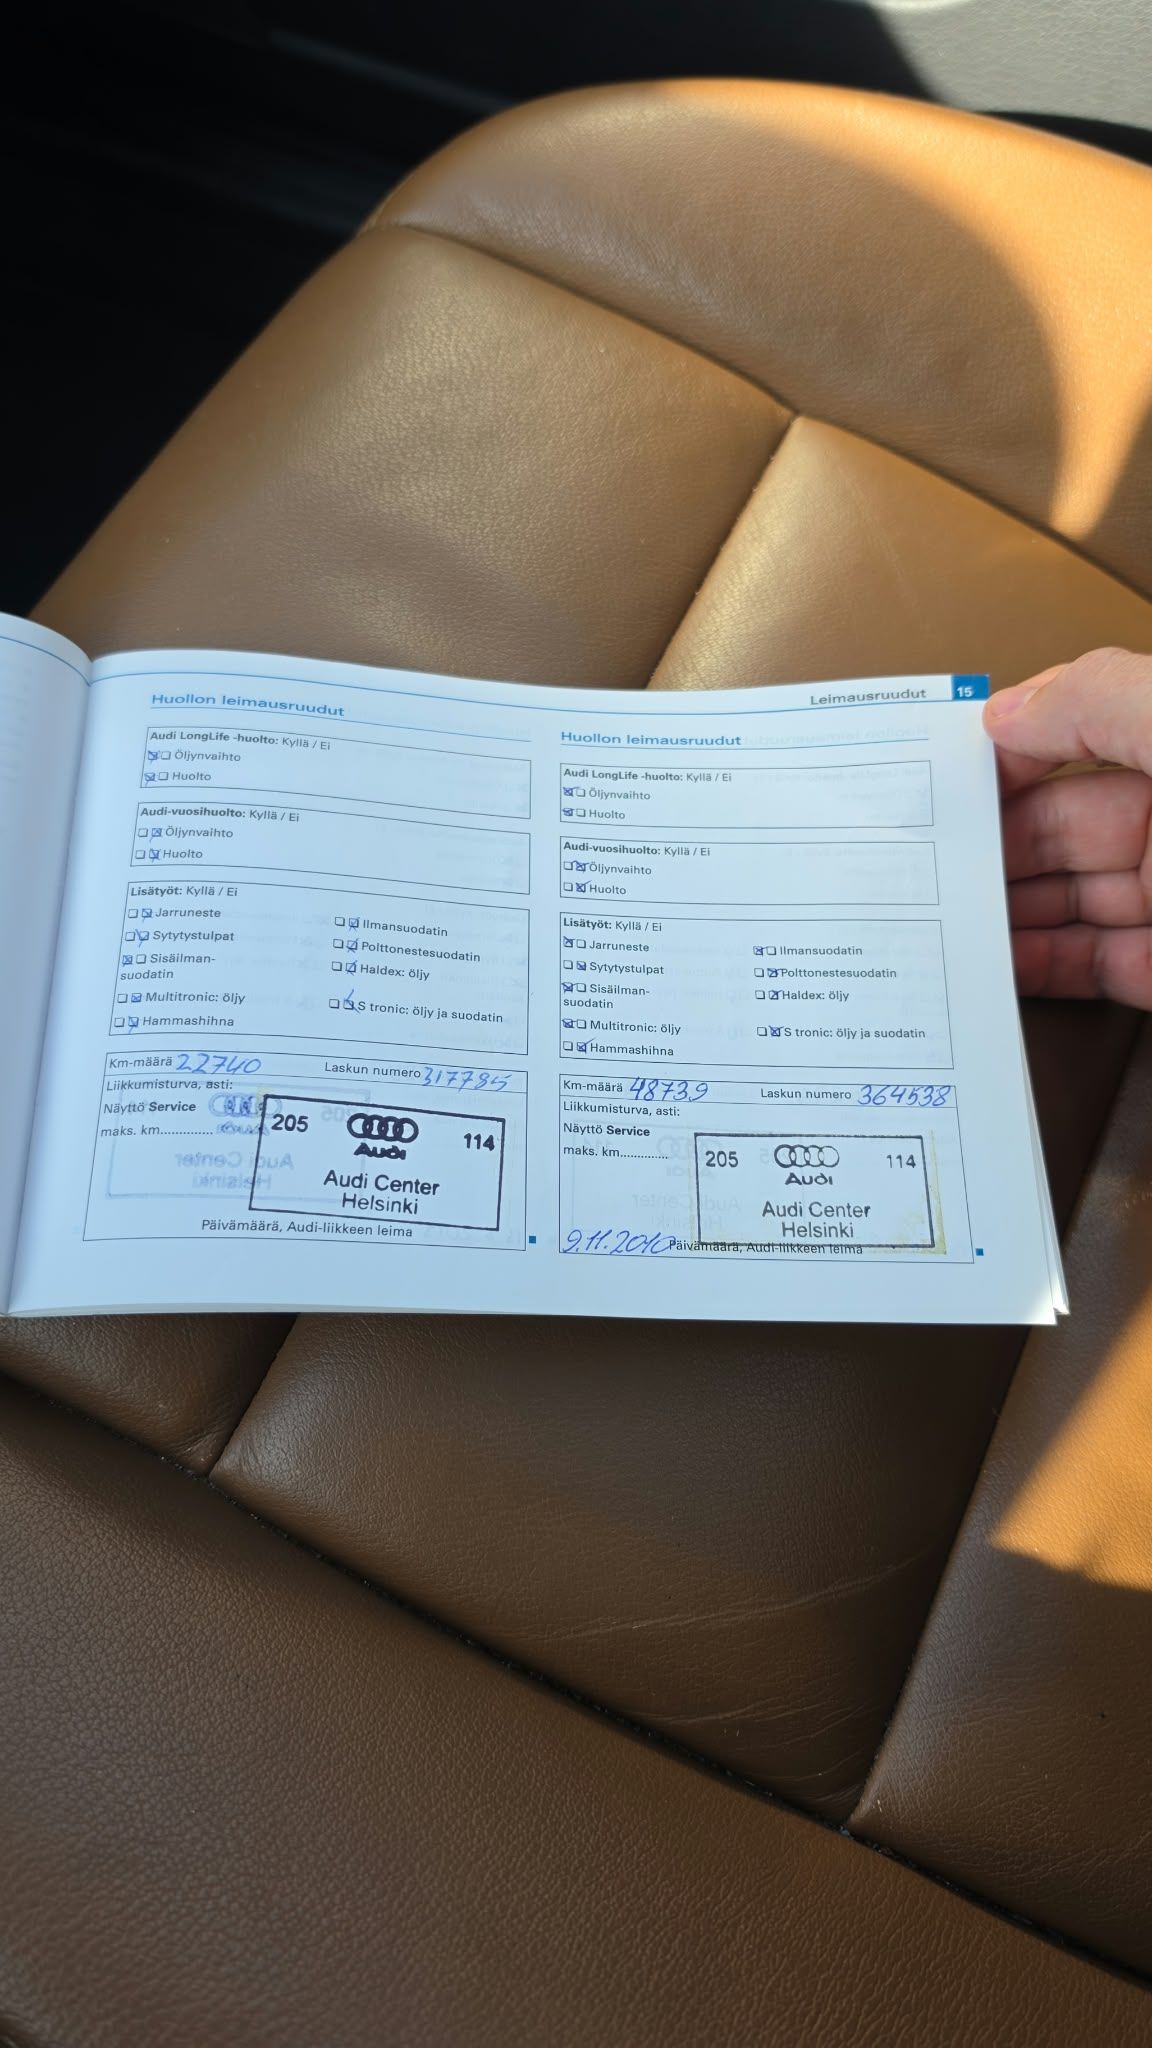 Leimausruudut 15
Huollon leimausruudut
Audi LongLife -huolto: Kyllä / Ei
Öljynvaihto
Huolto
Audi-vuosihuolto: Kyllä / Ei
Öljynvaihto
Huolto
Lisätyöt: Kyllä / Ei
Jarruneste
Sytytystulpat
Sisäilman-
suodatin
Multitronic: öljy
Hammashihna
Ilmansuodatin
Polttonestesuodatin
Haldex: öljy
S tronic: öljy ja suodatin
Km-määrä 22740 Laskun numero 317785
Liikkumisturva, asti:
Näyttö Service
maks. km..............
205 Audi 114
Audi Center
Helsinki
Päivämäärä, Audi-liikkeen leima
Huollon leimausruudut
Audi LongLife -huolto: Kyllä / Ei
Öljynvaihto
Huolto
Audi-vuosihuolto: Kyllä / Ei
Öljynvaihto
Huolto
Lisätyöt: Kyllä / Ei
Jarruneste
Sytytystulpat
Sisäilman-
suodatin
Multitronic: öljy
Hammashihna
Ilmansuodatin
Polttonestesuodatin
Haldex: öljy
S tronic: öljy ja suodatin
Km-määrä 48739 Laskun numero 364538
Liikkumisturva, asti:
Näyttö Service
maks. km..............
205 Audi 114
Audi Center
Helsinki
9.11.2010 Päivämäärä, Audi-liikkeen leima